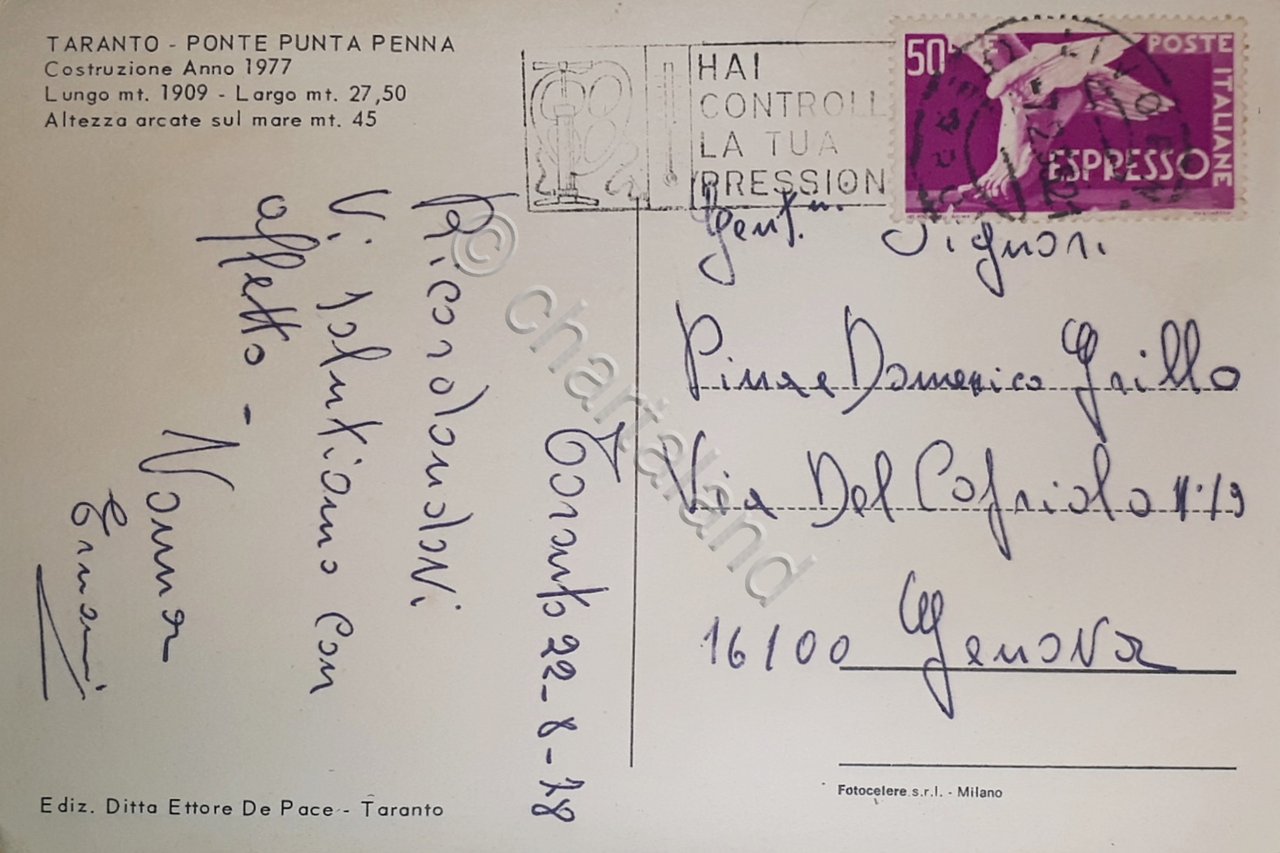 TARANTO - PONTE PUNTA PENNA
Costruzione Anno 1977
Lungo mt. 1909 - Largo mt. 27,50
Altezza arcate sul mare mt. 45
HAI
CONTROLL
LA TUA
PRESSION
50
POSTE
ITALIANE
ESPRESSO
Taranto 22-8-78
Ricordandovi
Vi salutiamo con
affetto -
Nanna
Gent.mi Signori
Pina e Domenico Grillo
Via Del Cafriolo N.19
16100 Genova
Ediz. Ditta Ettore De Pace - Taranto
Fotocelere s.r.l. - Milano
© chartaland